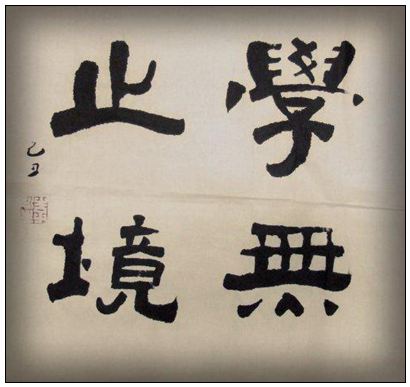 學無
止境
己丑